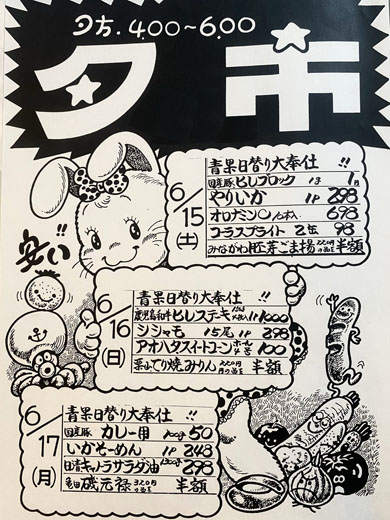 夕方.4.00~6.00
夕市
安い
6/15(土)
青果日替り大奉仕!!
国産豚ヒレブロック 1本 1円
やりいか 1P 298
オロナミンC 10本入 698
コーラスプライト 2缶 98
みながわ胚芽ごま揚 半額
6/16(日)
青果日替り大奉仕!!
鹿児島和牛ヒレステーキ 1P 1000
シシャモ 15尾 1P 298
アオハタスイートコーン 100
栗山てり焼みりん 220円の品を 半額
6/17(月)
青果日替り大奉仕!!
国産豚 カレー用 100g 50
いかそーめん 1P 248
日清キャノーラサラダ油 298
亀田 磯元禄 320円の品を 半額